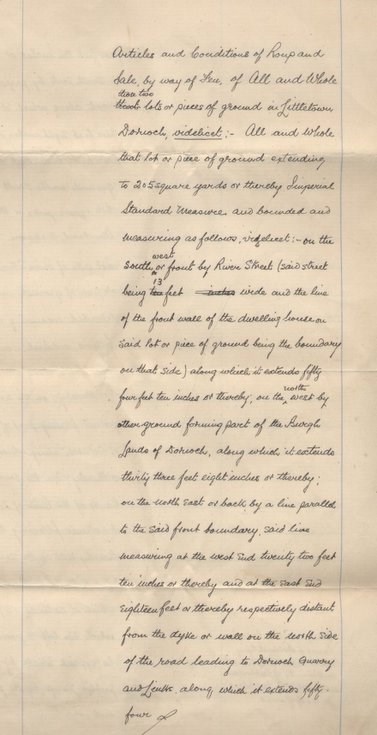 Articles and Conditions of Roup and
Sale, by way of Feu, of All and Whole
these two
lots or pieces of ground in Littletown
Dornoch, videlicet:- All and Whole
that lot or piece of ground extending
to 205 square yards or thereby Imperial
Standard Measure and bounded and
measuring as follows, videlicet:- on the
west
south or front by River Street (said street
13
being ten feet inches wide and the line
of the front wall of the dwelling house on
said lot or piece of ground being the boundary
on that side) along which it extends fifty
north
four feet ten inches or thereby, on the west by
other ground forming part of the Burgh
Lands of Dornoch, along which it extends
thirty three feet eight inches or thereby;
on the north east or back by a line parallel
to the said front boundary, said line
measuring at the west end twenty two feet
ten inches or thereby and at the east end
eighteen feet or thereby respectively distant
from the dyke or wall on the north side
of the road leading to Dornoch Quarry
and Links, along which it extends fifty
four